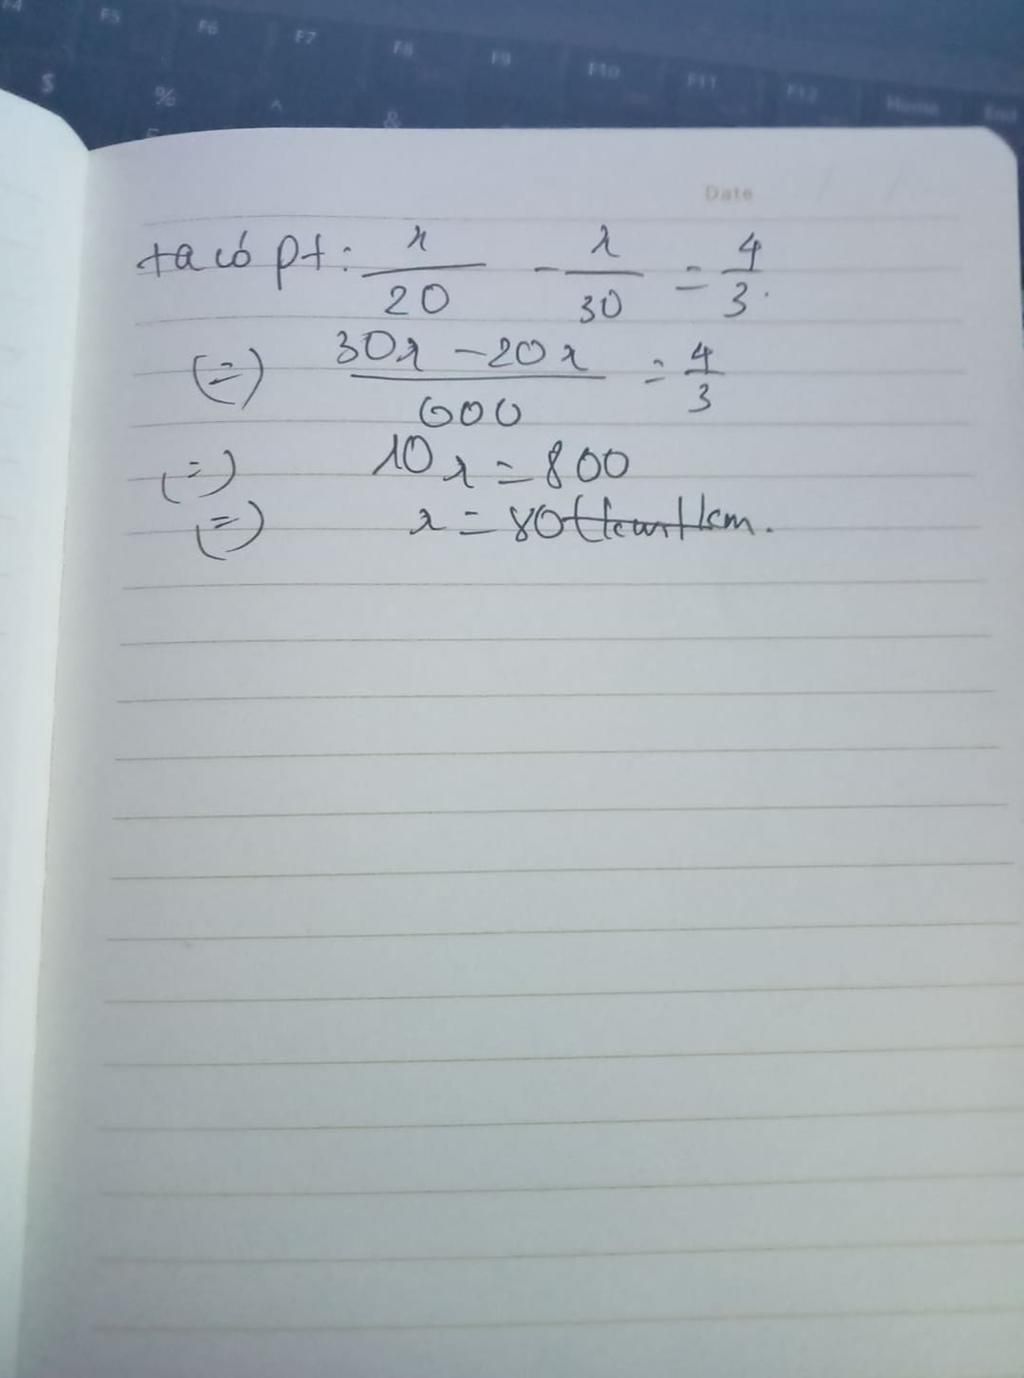 F4 F5 F6 F7 F8 F9 F10 F11 F12 Home End
$ % ^ &
Date / /
ta có pt: x/20 - x/30 = 4/3.
(=) (30x - 20x)/600 = 4/3
(=) 10x = 800
(=) x = 80 km.